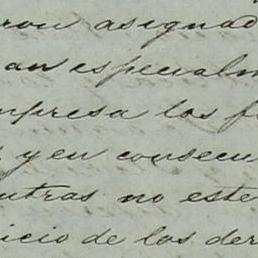 ron asignad
an especialm
mpresa los f
y en consecu
ntras no este
icio de los der